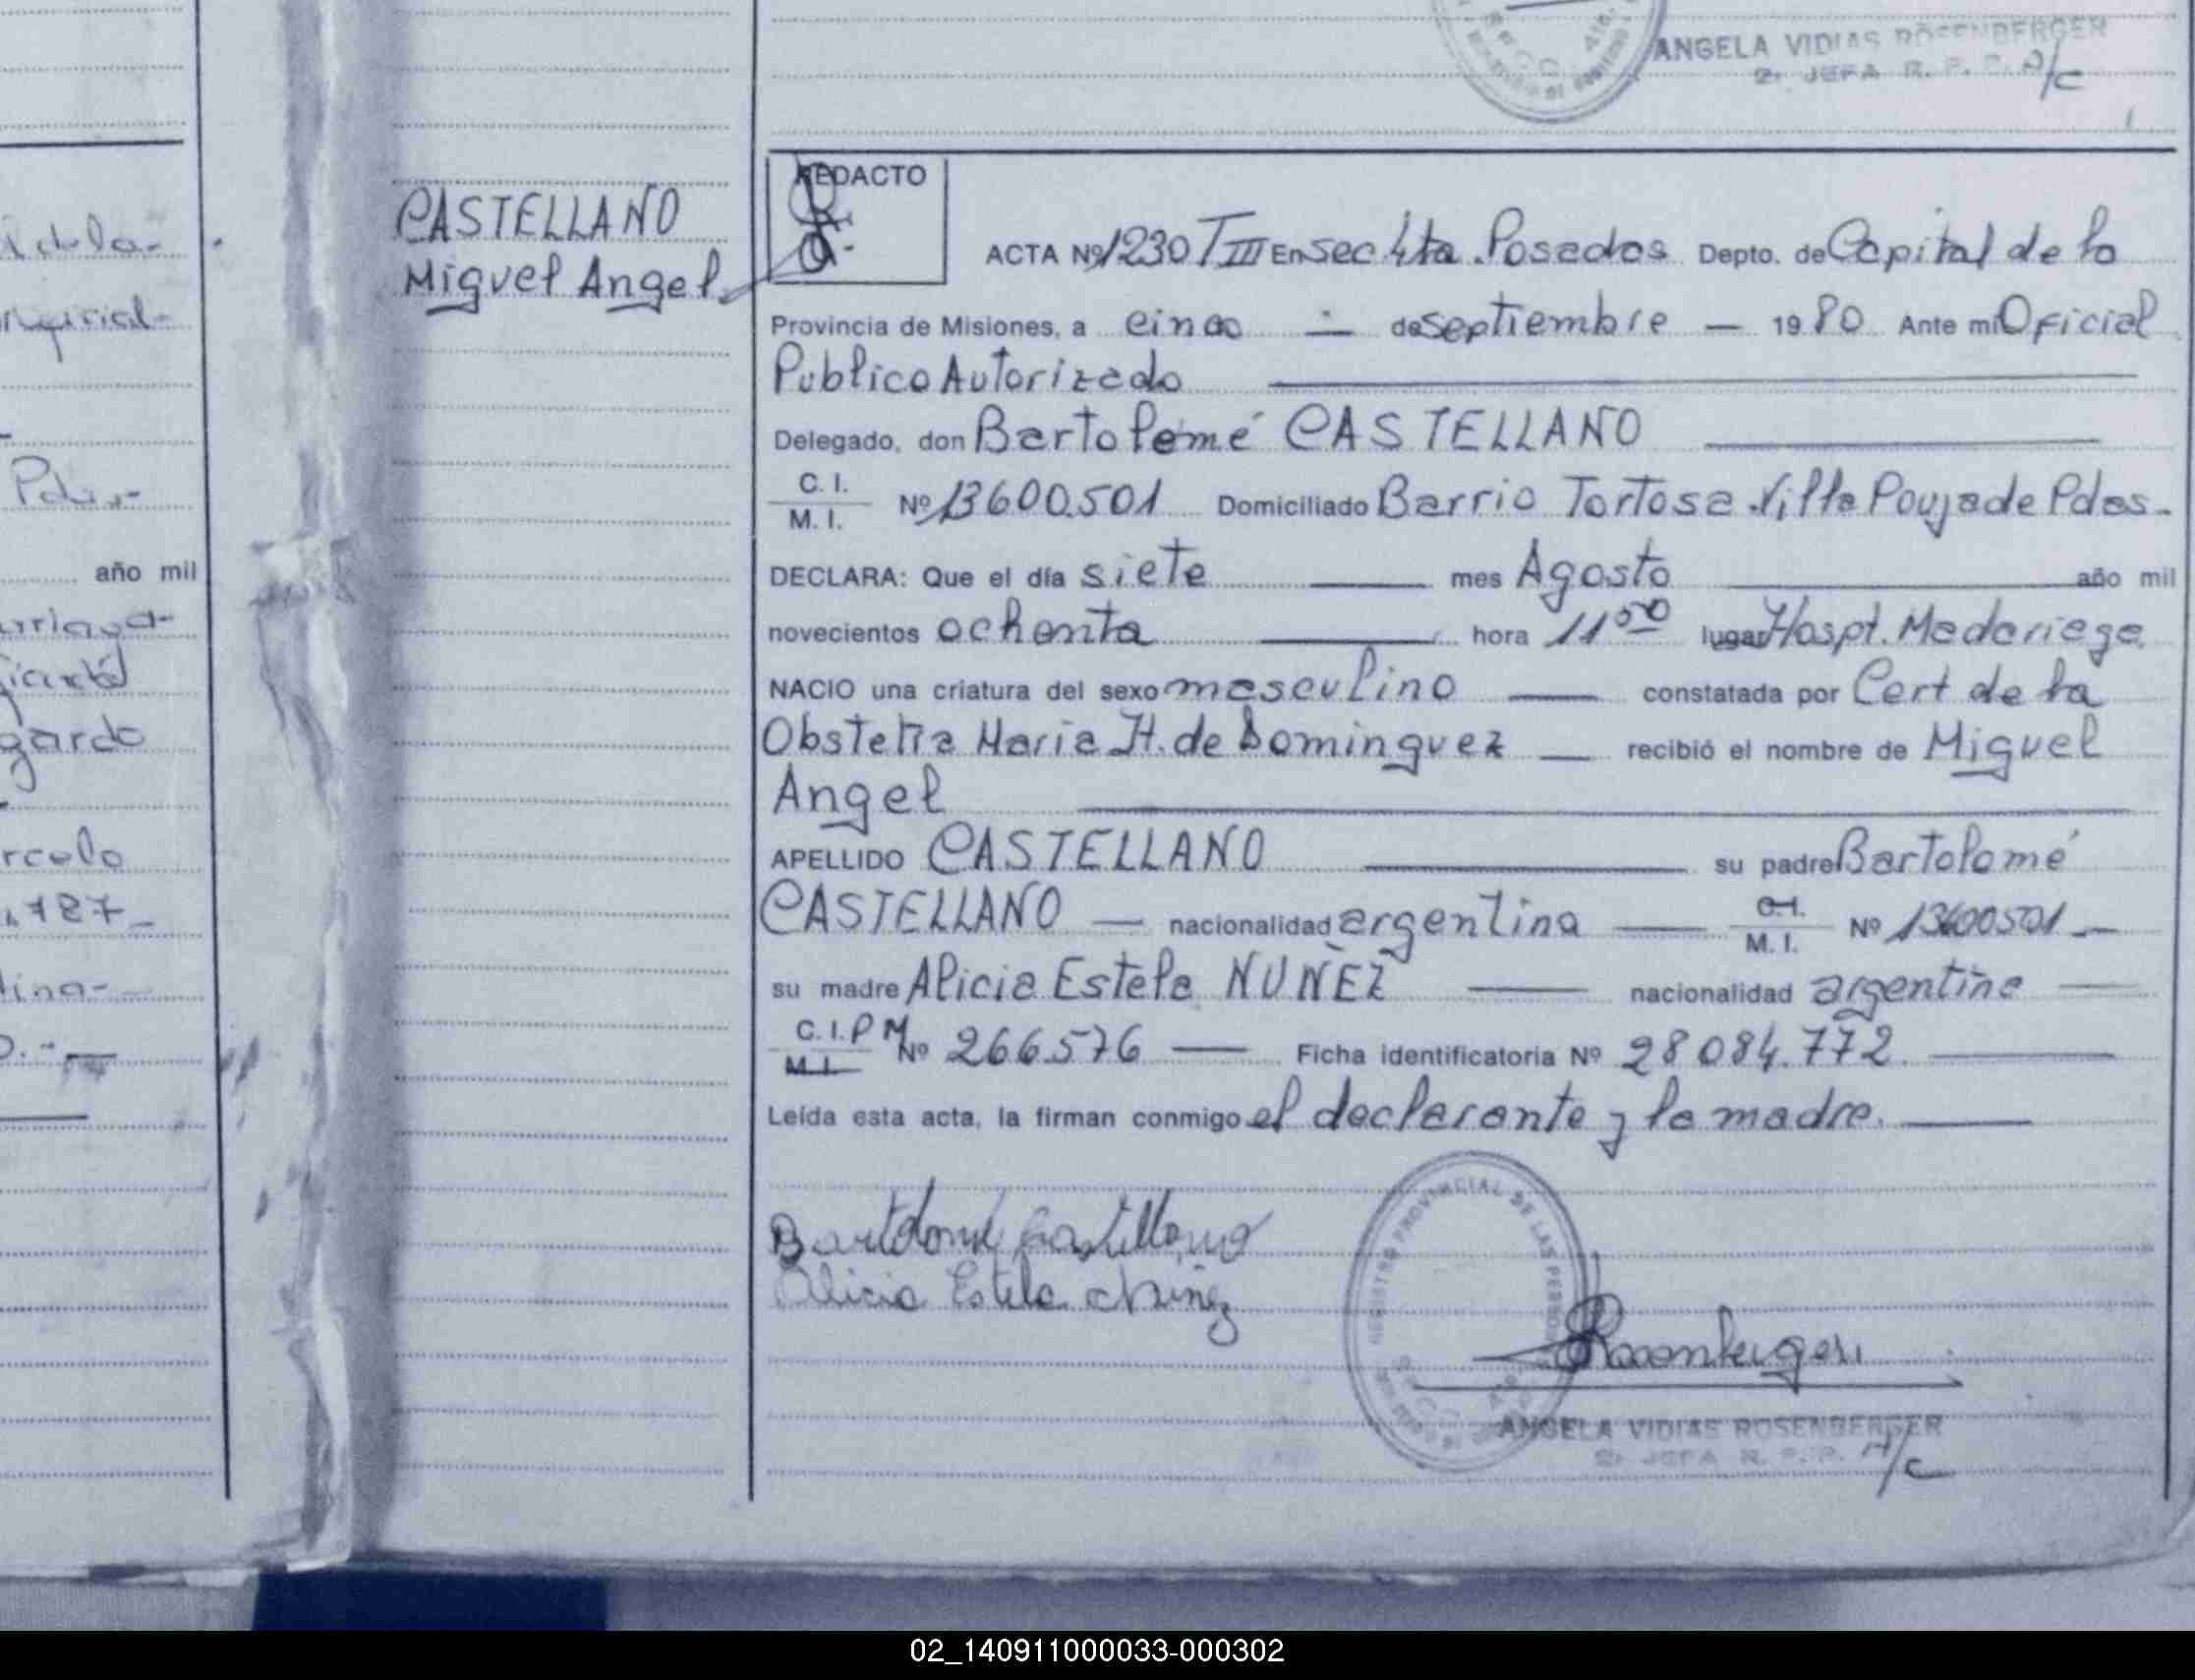 ANGELA VIDIAS ROSENBERGER
2. JEFA R. P. P. A/C
CASTELLANO
Miguel Angel
REDACTO
ACTA Nº 1230 T III En Sec 4ta. Posadas Depto. de Capital de la
Provincia de Misiones, a cinco — de septiembre — 19 80 Ante mi Oficial
Publico Autorizado
Delegado, don Bartolomé CASTELLANO
C. I.
M. I. Nº 13600.501 Domiciliado Barrio Tortosa Villa Poujade Pdas.
DECLARA: Que el día siete mes Agosto año mil
novecientos ochenta hora 11 50 lugar Hospt. Madariaga
NACIO una criatura del sexo masculino constatada por Cert de la
Obstetra Maria H. de Dominguez recibió el nombre de Miguel
Angel
APELLIDO CASTELLANO su padre Bartolomé
CASTELLANO — nacionalidad argentina C.I.
M. I. Nº 13600501
su madre Alicia Estela NUÑEZ nacionalidad argentina
C. I. P M
M. I. Nº 266.576 — Ficha identificatoria Nº 28084.772
Leída esta acta, la firman conmigo el declarante y la madre.
Bartolomé Castellano
Alicia Estela Nuñez
REGISTRO PROVINCIAL DE LAS PERSONAS
Rosenberger
ANGELA VIDIAS ROSENBERGER
2. JEFA R. P. P. A/C
i de la-
Pdas-
año mil
gardo
rcelo
787-
tina-
02_140911000033-000302